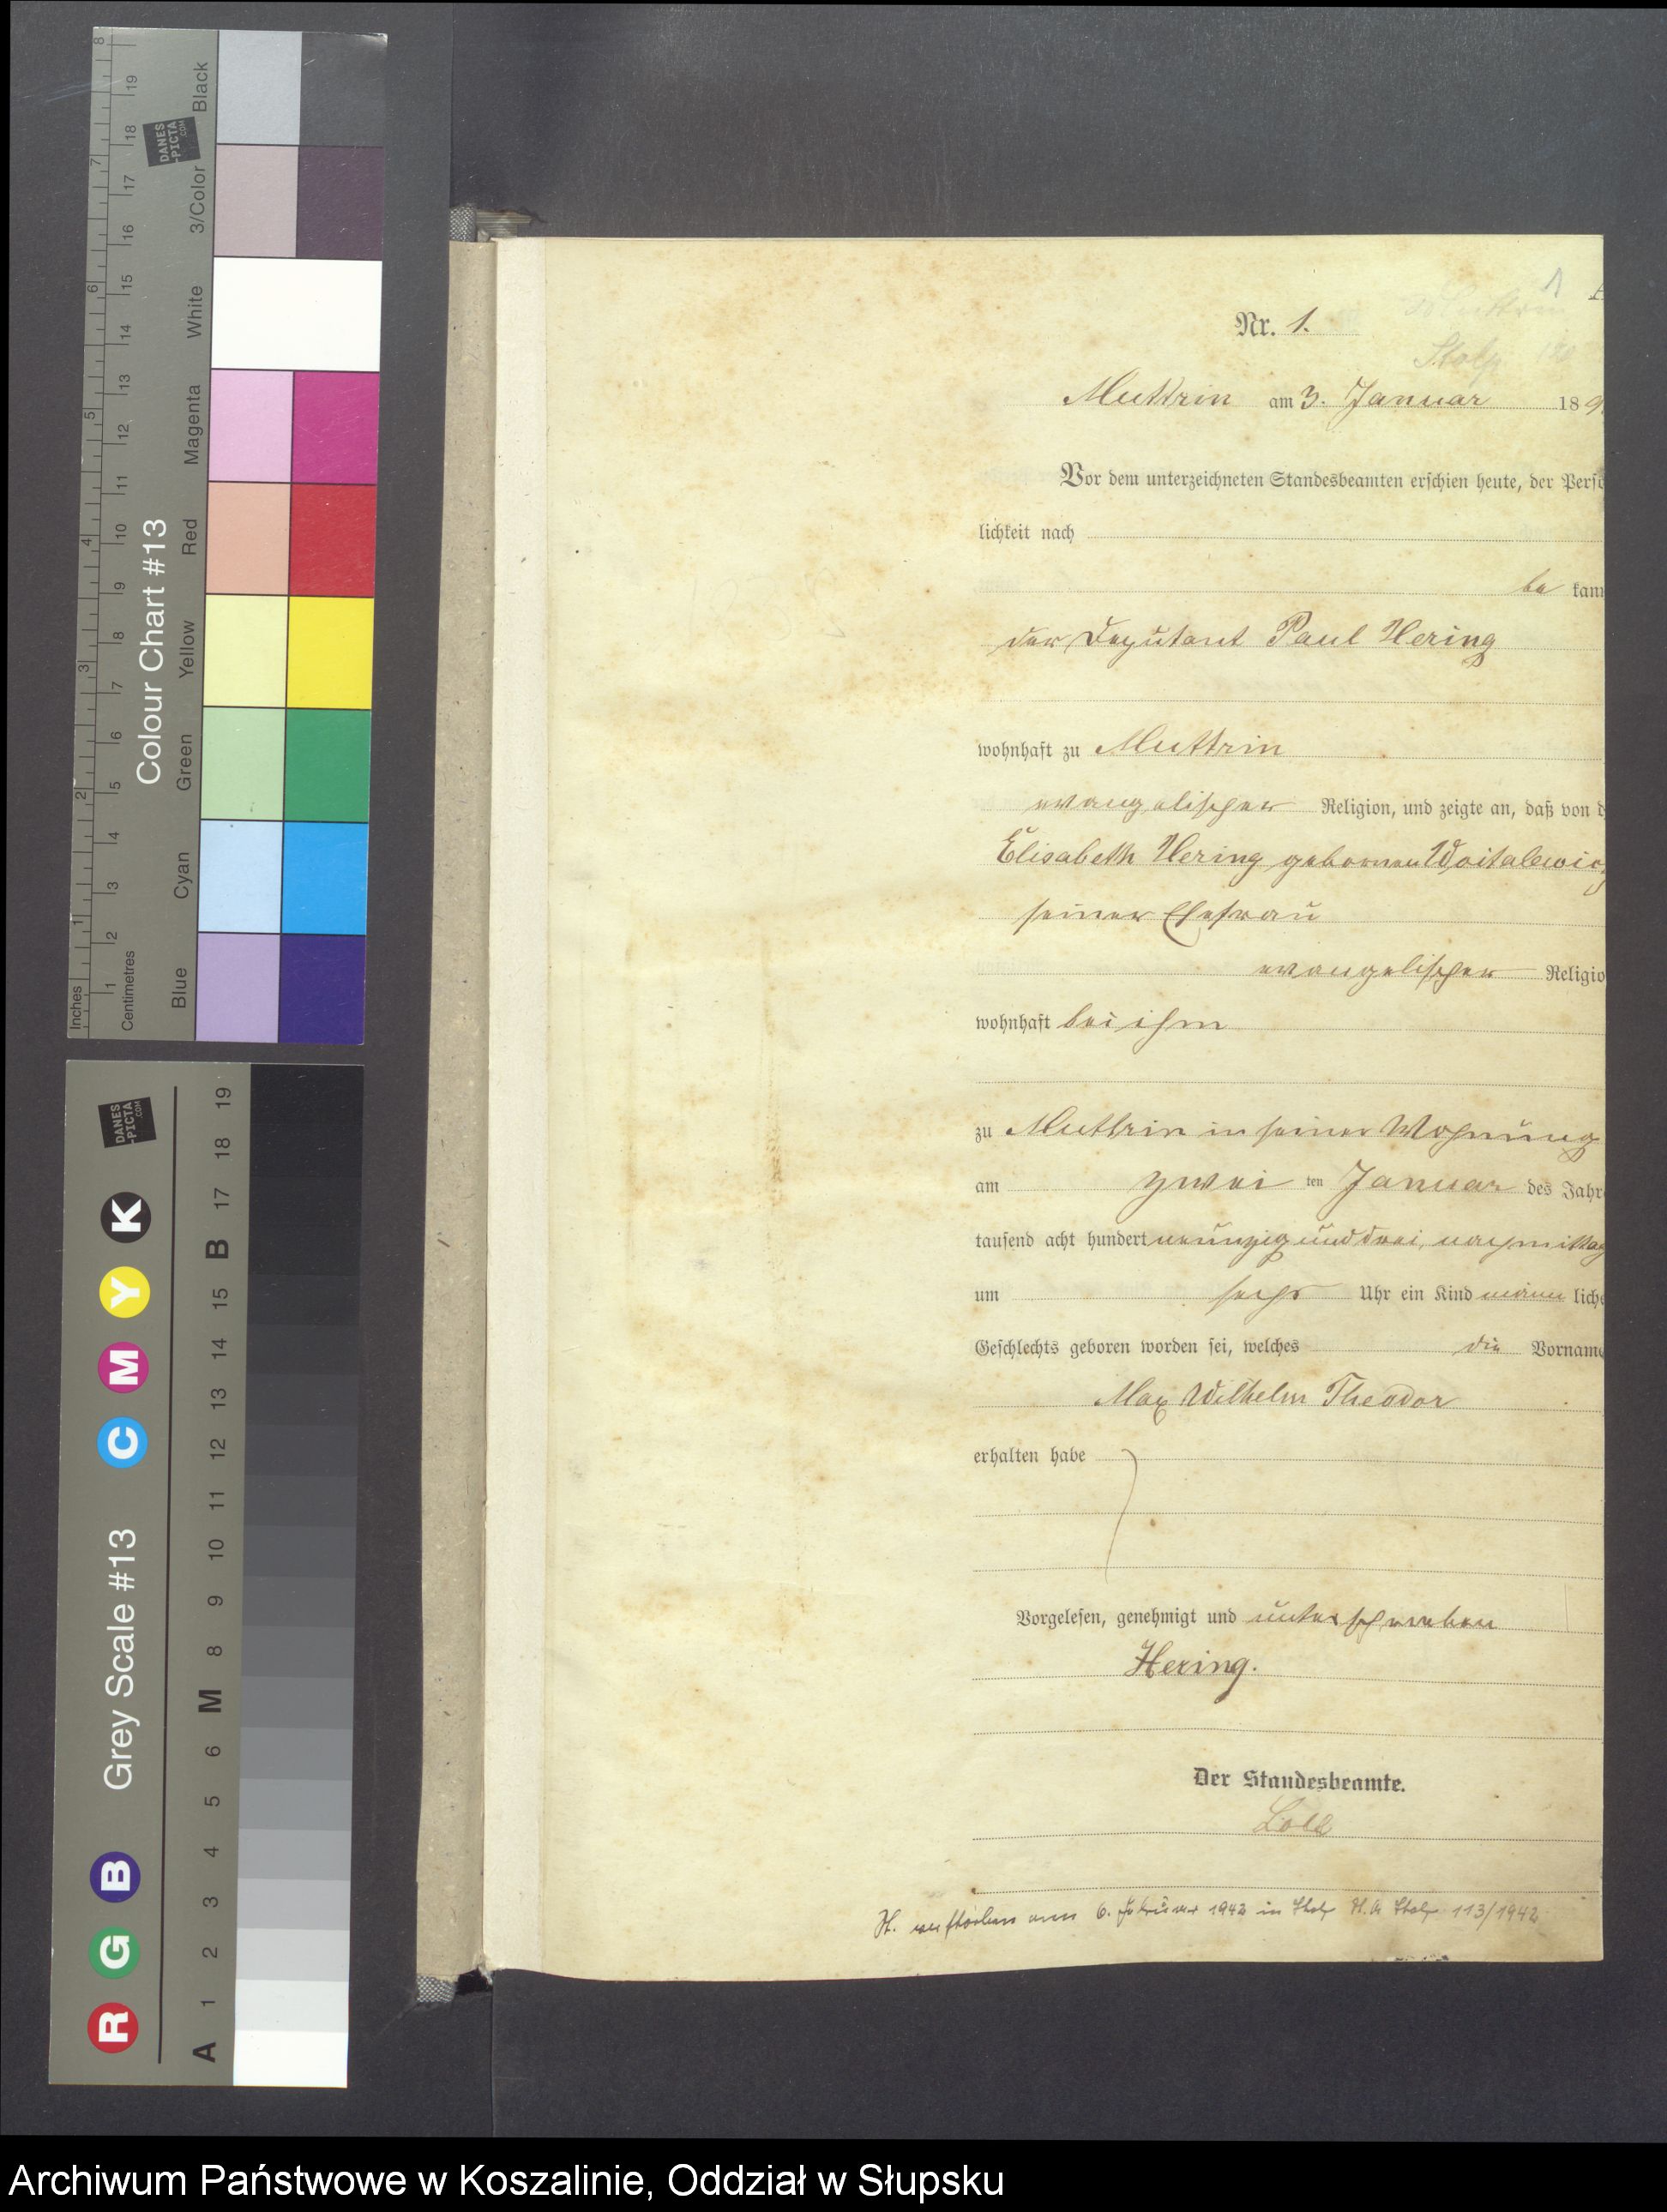 1
Nr. 1.
Stolp
Muttrin am 3. Januar 189
Vor dem unterzeichneten Standesbeamten erschien heute, der Persö
lichkeit nach
be kann
der Deputant Paul Hering
wohnhaft zu Muttrin
evangelischer Religion, und zeigte an, daß von d
Elisabeth Hering geborenen Woitalewicz
seiner Ehefrau
evangelischer Religio
wohnhaft bei ihm
zu Muttrin in seiner Wohnung
am zwei ten Januar des Jahre
tausend acht hundert neunzig und drei, nachmittag
um sechs Uhr ein Kind männ liche
Geschlechts geboren worden sei, welches die Vorname
Max Wilhelm Theodor
erhalten habe
Vorgelesen, genehmigt und unterschrieben
Hering.
Der Standesbeamte.
H. verstorben am 6. Februar 1942 in Stolp St. A Stolp 113/1942
Colour Chart #13
Black
3/Color
White
Magenta
Red
Yellow
Green
Cyan
Blue
Inches
1 2 3 4 5 6 7 8
Centimetres
1 2 3 4 5 6 7 8 9 10 11 12 13 14 15 16 17 18 19
DANES
-PICTA
.COM
DANES
-PICTA
.COM
Grey Scale #13
R G B C M Y K
A 1 2 3 4 5 6 M 8 9 10 11 12 13 14 15 B 17 18 19
Archiwum Państwowe w Koszalinie, Oddział w Słupsku